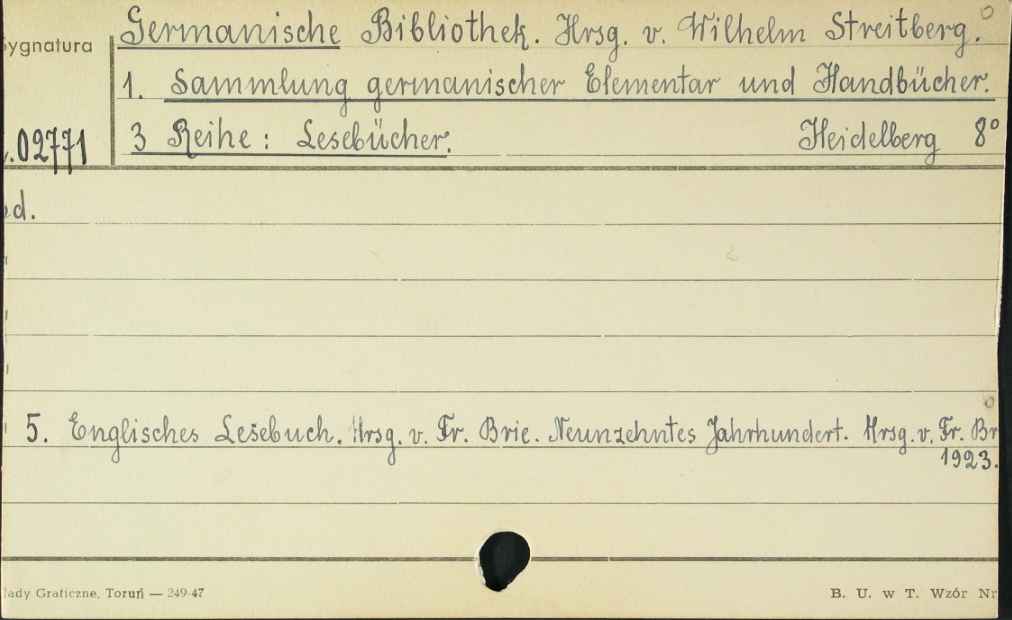 ygnatura
Germanische Bibliothek. Hrsg. v. Wilhelm Streitberg.
1. Sammlung germanischer Elementar und Handbücher.
.02771
3 Reihe: Lesebücher. Heidelberg 8°
d.
5. Englisches Lesebuch. Hrsg. v. Fr. Brie. Neunzehntes Jahrhundert. Hrsg. v. Fr. Br
1923.
łady Graficzne, Toruń — 249-47
B. U. w T. Wzór Nr